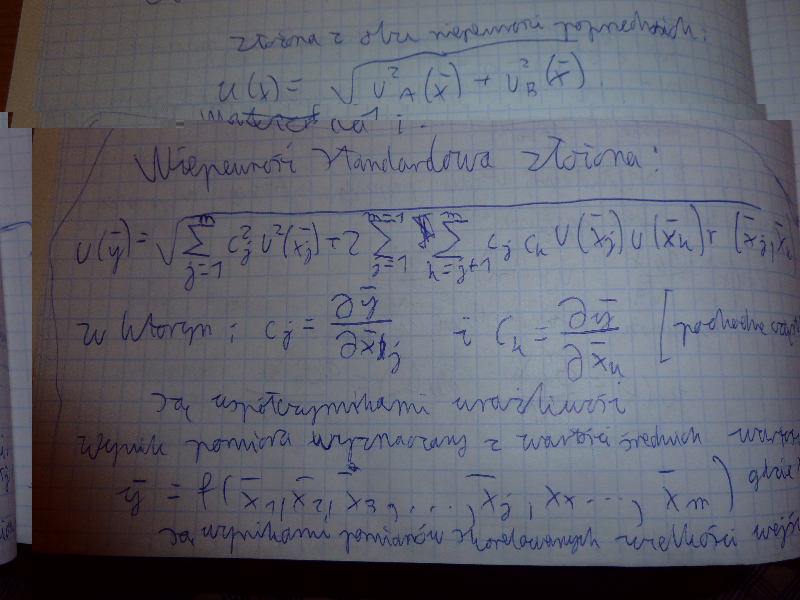 złożona z obu niepewności poprzednich:
u(x) = √(u²_A(x̄) + u²_B(x̄))
Niepewność standardowa złożona:
u(ȳ) = √(∑_{j=1}^{m} c²_j u²(x̄_j) + 2 ∑_{j=1}^{m-1} ∑_{k=j+1}^{m} c_j c_k u(x̄_j) u(x̄_k) r(x̄_j, x̄_k
w którym: c_j = ∂ȳ/∂x̄_j i c_k = ∂ȳ/∂x̄_k [pochodne
są współczynnikami wrażliwości
Wynik pomiaru wyznaczany z wartości średnich
ȳ = f(x̄_1, x̄_2, x̄_3, ..., x̄_j, x_k ..., x̄_m)
są wynikami pomiarów skorelowanych wielkości